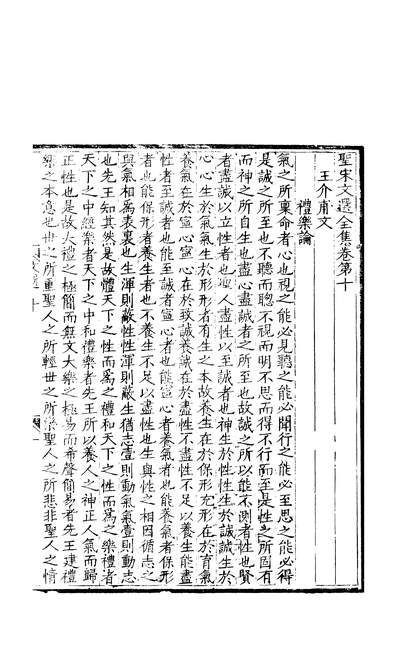 聖宋文選全集卷第十
王介甫文
禮樂論
氣之所稟命者心也視之能必見聽之能必聞行之能必至思之能必得
是誠之所至也不聽而聰不視而明不思而得不行而至是性之所固有
而神之所自生也盡心盡誠者之所至也故誠之所以能不測者性也賢
者盡誠以立性者也聖人盡性以至誠者也神生於性性生於誠誠生於
心心生於氣氣生於形形者有生之本故養生在於保形充形在於育氣
養氣在於寧心寧心在於致誠養誠在於盡性不盡性不足以養生能盡
性者至誠者也能至誠者寧心者也能寧心者養氣者也能養氣者保形
者也能保形者養生者也不養生不足以盡性也生與性之相因循志之
與氣相為表裏也生渾則蔽性性渾則蔽生猶志壹則動氣氣壹則動志
也先王知其然是故體天下之性而為之禮和天下之性而為之樂禮者
天下之中經樂者天下之中和禮樂者先王所以養人之神正人氣而歸
正性也是故大禮之極簡而無文大樂之極易而希聲簡易者先王建禮
樂之本意也世之所重聖人之所輕世之所樂聖人之所悲非聖人之情